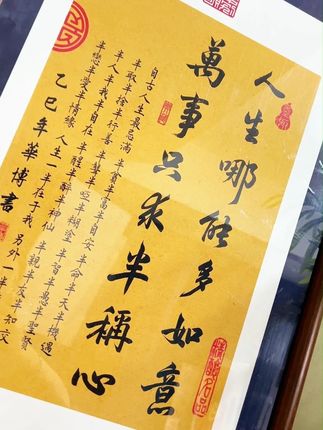 人生哪能多如意
萬事只求半稱心
自古人生最忌滿 半貧半富半自安 半命半天半機遇
半取半捨半行善 半聾半啞半糊塗 半智半愚半聖賢
半人半我半自在 半醒半醉半神仙 半親半友半知交
半戀半愛半情緣 人生一半在于我 另外一半
乙巳年華博書